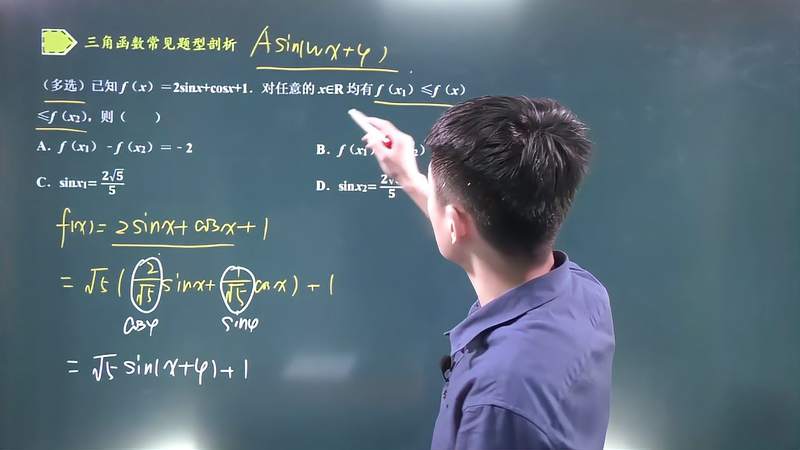 三角函数常见题型剖析 Asin(ωx+φ)
(多选)已知f(x)=2sinx+cosx+1.对任意的x∈R均有f(x₁)≤f(x)
≤f(x₂),则( )
A.f(x₁)-f(x₂)=-2
B.f(x₁)
C.sinx₁=2√5/5
D.sinx₂=
f(x)=2sinx+cosx+1
=√5(2/√5 sinx+1/√5 cosx)+1
cosφ sinφ
=√5 sin(x+φ)+1